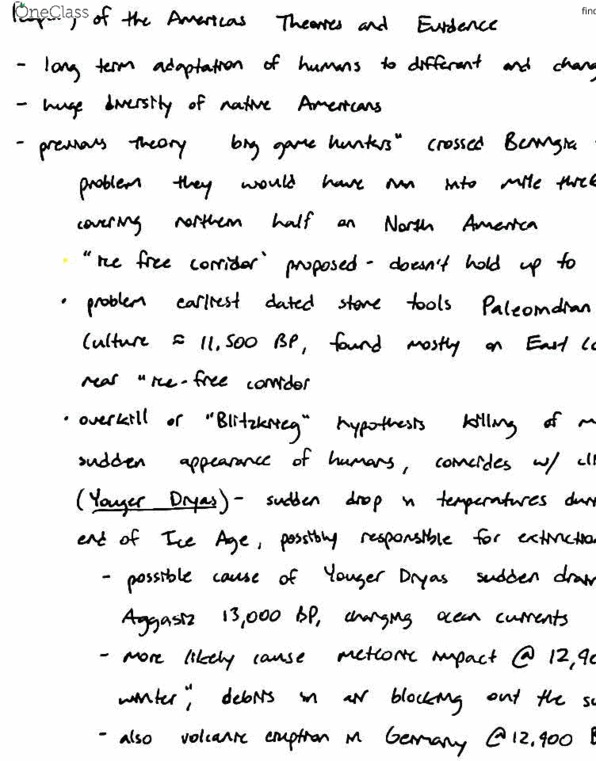 OneClass
find
of the Americas Theories and Evidence
- long term adaptation of humans to different and chang
- huge diversity of native Americans
- previous theory big game hunters" crossed Beringia
problem they would have run into mile thick
covering northern half on North America
• "ice free corridor" proposed - doesn't hold up to
• problem earliest dated stone tools Paleoindian
Culture ≈ 11,500 BP, found mostly on East Co
near "ice-free corridor
• overkill or "Blitzkrieg" hypothesis killing of m
sudden appearance of humans, coincides w/ cli
(Younger Dryas) - sudden drop in temperatures dur
end of Ice Age, possibly responsible for extinction
- possible cause of Younger Dryas sudden drain
Aggasiz 13,000 BP, changing ocean currents
- more likely cause meteoric impact @ 12,90
winter", debris in air blocking out the su
- also volcanic eruption in Germany @ 12,900 B